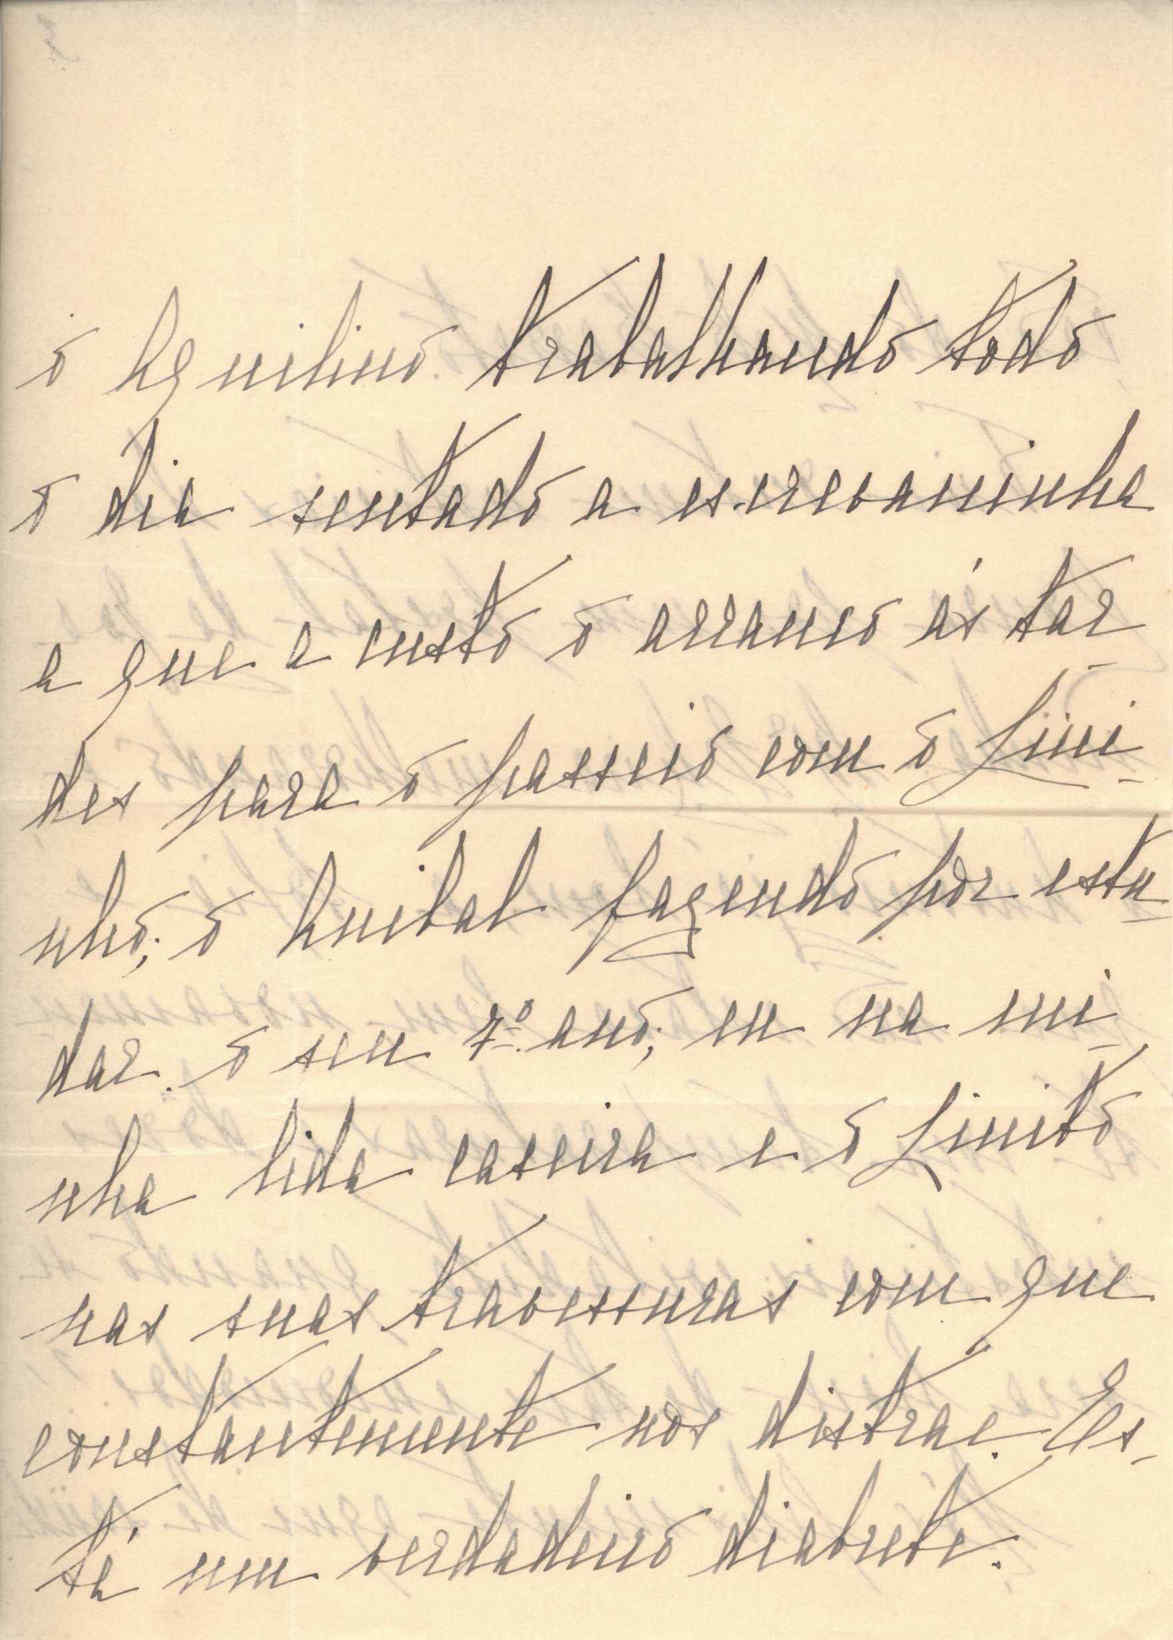 o Aquilino trabalhando todo
o dia sentado a escrevaninha
a que a custo o arranco ás tar
des para o passeio com o Jini-
nho; o Anibal fazendo por estu-
dar o seu 7º ano; eu na mi-
nha lida caseira e o Jinito
nas suas travessuras com que
constantemente nos distrae. Es-
tá um verdadeiro diabrete.